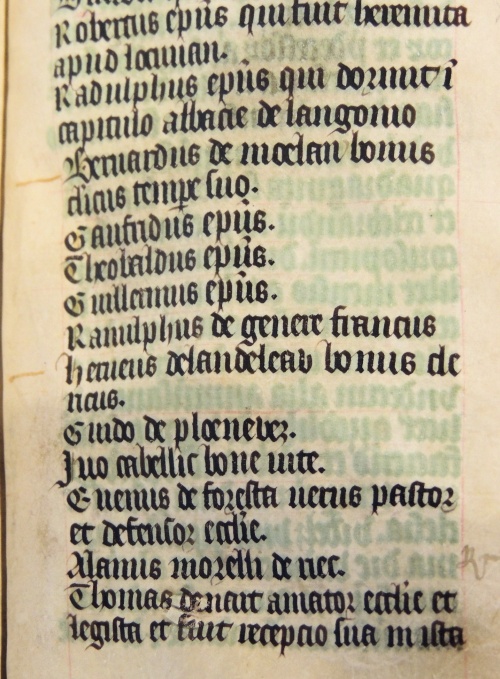 Robertus epūs qui fuit heremita
apud locuuan.
Radulphus epūs qui dormit ī
capitulo abbacie de langonio
Bernardus de moelan bonus
clicus tempe suo.
Gaufridus epūs.
Theobaldus epūs.
Guillermus epūs.
Ranulphus de genere francus
herueus delandeleau bonus cle
ricus.
Guido de ploeneuez.
Iuo cabellic bone uite.
Euenus de foresta uerus pastor
et defensor ecclie.
Alanus morelli de riec.
Thomas denant amator ecclie et
legista et fuit recepcio sua in ista